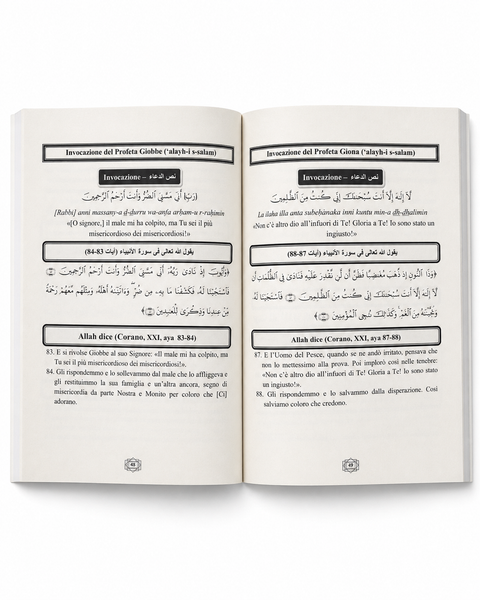 Invocazione del Profeta Giobbe (‘alayh-i s-salam)
Invocazione – نص الدعاء
(رَبِّ) أَنِّي مَسَّنِيَ الضُّرُّ وَأَنتَ أَرْحَمُ الرَّاحِمِينَ
[Rabbi] anni massany-a ḍ-ḍurru wa-anta arḥam-u r-raḥimin
«[O signore,] il male mi ha colpito, ma
Tu sei il più
misericordioso dei misericordiosi!»
يقول الله تعالى في سورة الأنبياء (آيات 83-84)
﴿وَأَيُّوبَ إِذْ نَادَى رَبَّهُ أَنِّي مَسَّنِيَ الضُّرُّ وَأَنتَ أَرْحَمُ الرَّاحِمِينَ
فَاسْتَجَبْنَا لَهُ فَكَشَفْنَا مَا بِهِ مِن ضُرٍّ وَآتَيْنَاهُ أَهْلَهُ وَمِثْلَهُم مَّعَهُمْ رَحْمَةً
مِّنْ عِندِنَا وَذِكْرَى لِلْعَابِدِينَ﴾
Allah dice (Corano, XXI, aya 83-84)
83. E si rivolse Giobbe al suo Signore: «Il male mi ha colpito, ma
Tu sei il più misericordioso dei misericordiosi!».
84. Gli rispondemmo e lo sollevammo dal male che lo affliggeva e
gli restituimmo la sua famiglia e un’altra ancora, segno di
misericordia da parte Nostra e Monito per coloro che [Ci]
adorano.
48
Invocazione del Profeta Giona (‘alayh-i s-salam)
Invocazione – نص الدعاء
لَا إِلَهَ إِلَّا أَنتَ سُبْحَانَكَ إِنِّي كُنتُ مِنَ الظَّالِمِينَ
La ilaha illa anta subeḥanaka inni kuntu min-a dh-dhalimin
«Non c’è altro dio all’infuori di Te! Gloria a Te! Io sono stato un
ingiusto!»
يقول الله تعالى في سورة الأنبياء (آيات 87-88)
﴿وَذَا النُّونِ إِذ ذَّهَبَ مُغَاضِبًا فَظَنَّ أَن لَّن نَّقْدِرَ عَلَيْهِ فَنَادَى فِي الظُّلُمَاتِ أَن
لَّا إِلَهَ إِلَّا أَنتَ سُبْحَانَكَ إِنِّي كُنتُ مِنَ الظَّالِمِينَ فَاسْتَجَبْنَا لَهُ
وَنَجَّيْنَاهُ مِنَ الْغَمِّ وَكَذَلِكَ نُنجِي الْمُؤْمِنِينَ﴾
Allah dice (Corano, XXI, aya 87-88)
87. E l’Uomo del Pesce, quando se ne andò irritato, pensava che
non lo mettessimo alla prova. Poi implorò così nelle tenebre:
«Non c’è altro dio all’infuori di Te! Gloria a Te! Io sono stato
un ingiusto!».
88. Gli rispondemmo e lo salvammo dalla disperazione. Così
salviamo coloro che credono.
49